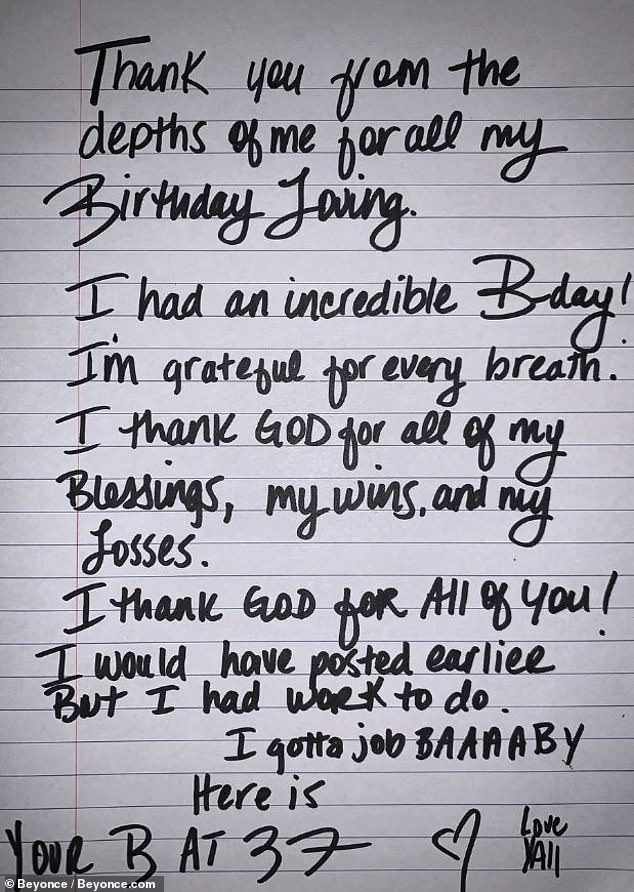 Thank you from the
depths of me for all my
Birthday Loving.
I had an incredible B-day!
I'm grateful for every breath.
I thank GOD for all of my
Blessings, my wins, and my
Losses.
I thank GOD for All of you!
I would have posted earlier
But I had work to do.
I gotta job BAAAABY
Here is
YOUR B AT 37 ♡ Love
YAll
© Beyonce / Beyonce.com